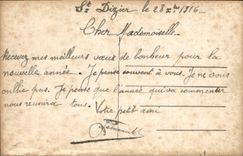 St Dizier le 28 Xbre 1916
Cher Mademoiselle
Recevez mes meilleurs vœux de bonheur pour la
nouvelle année. Je pense souvent à vous. Je ne vous
oublie pas. Je pense que l'année qui va commenter
nous reunira tous. Votre petit ami